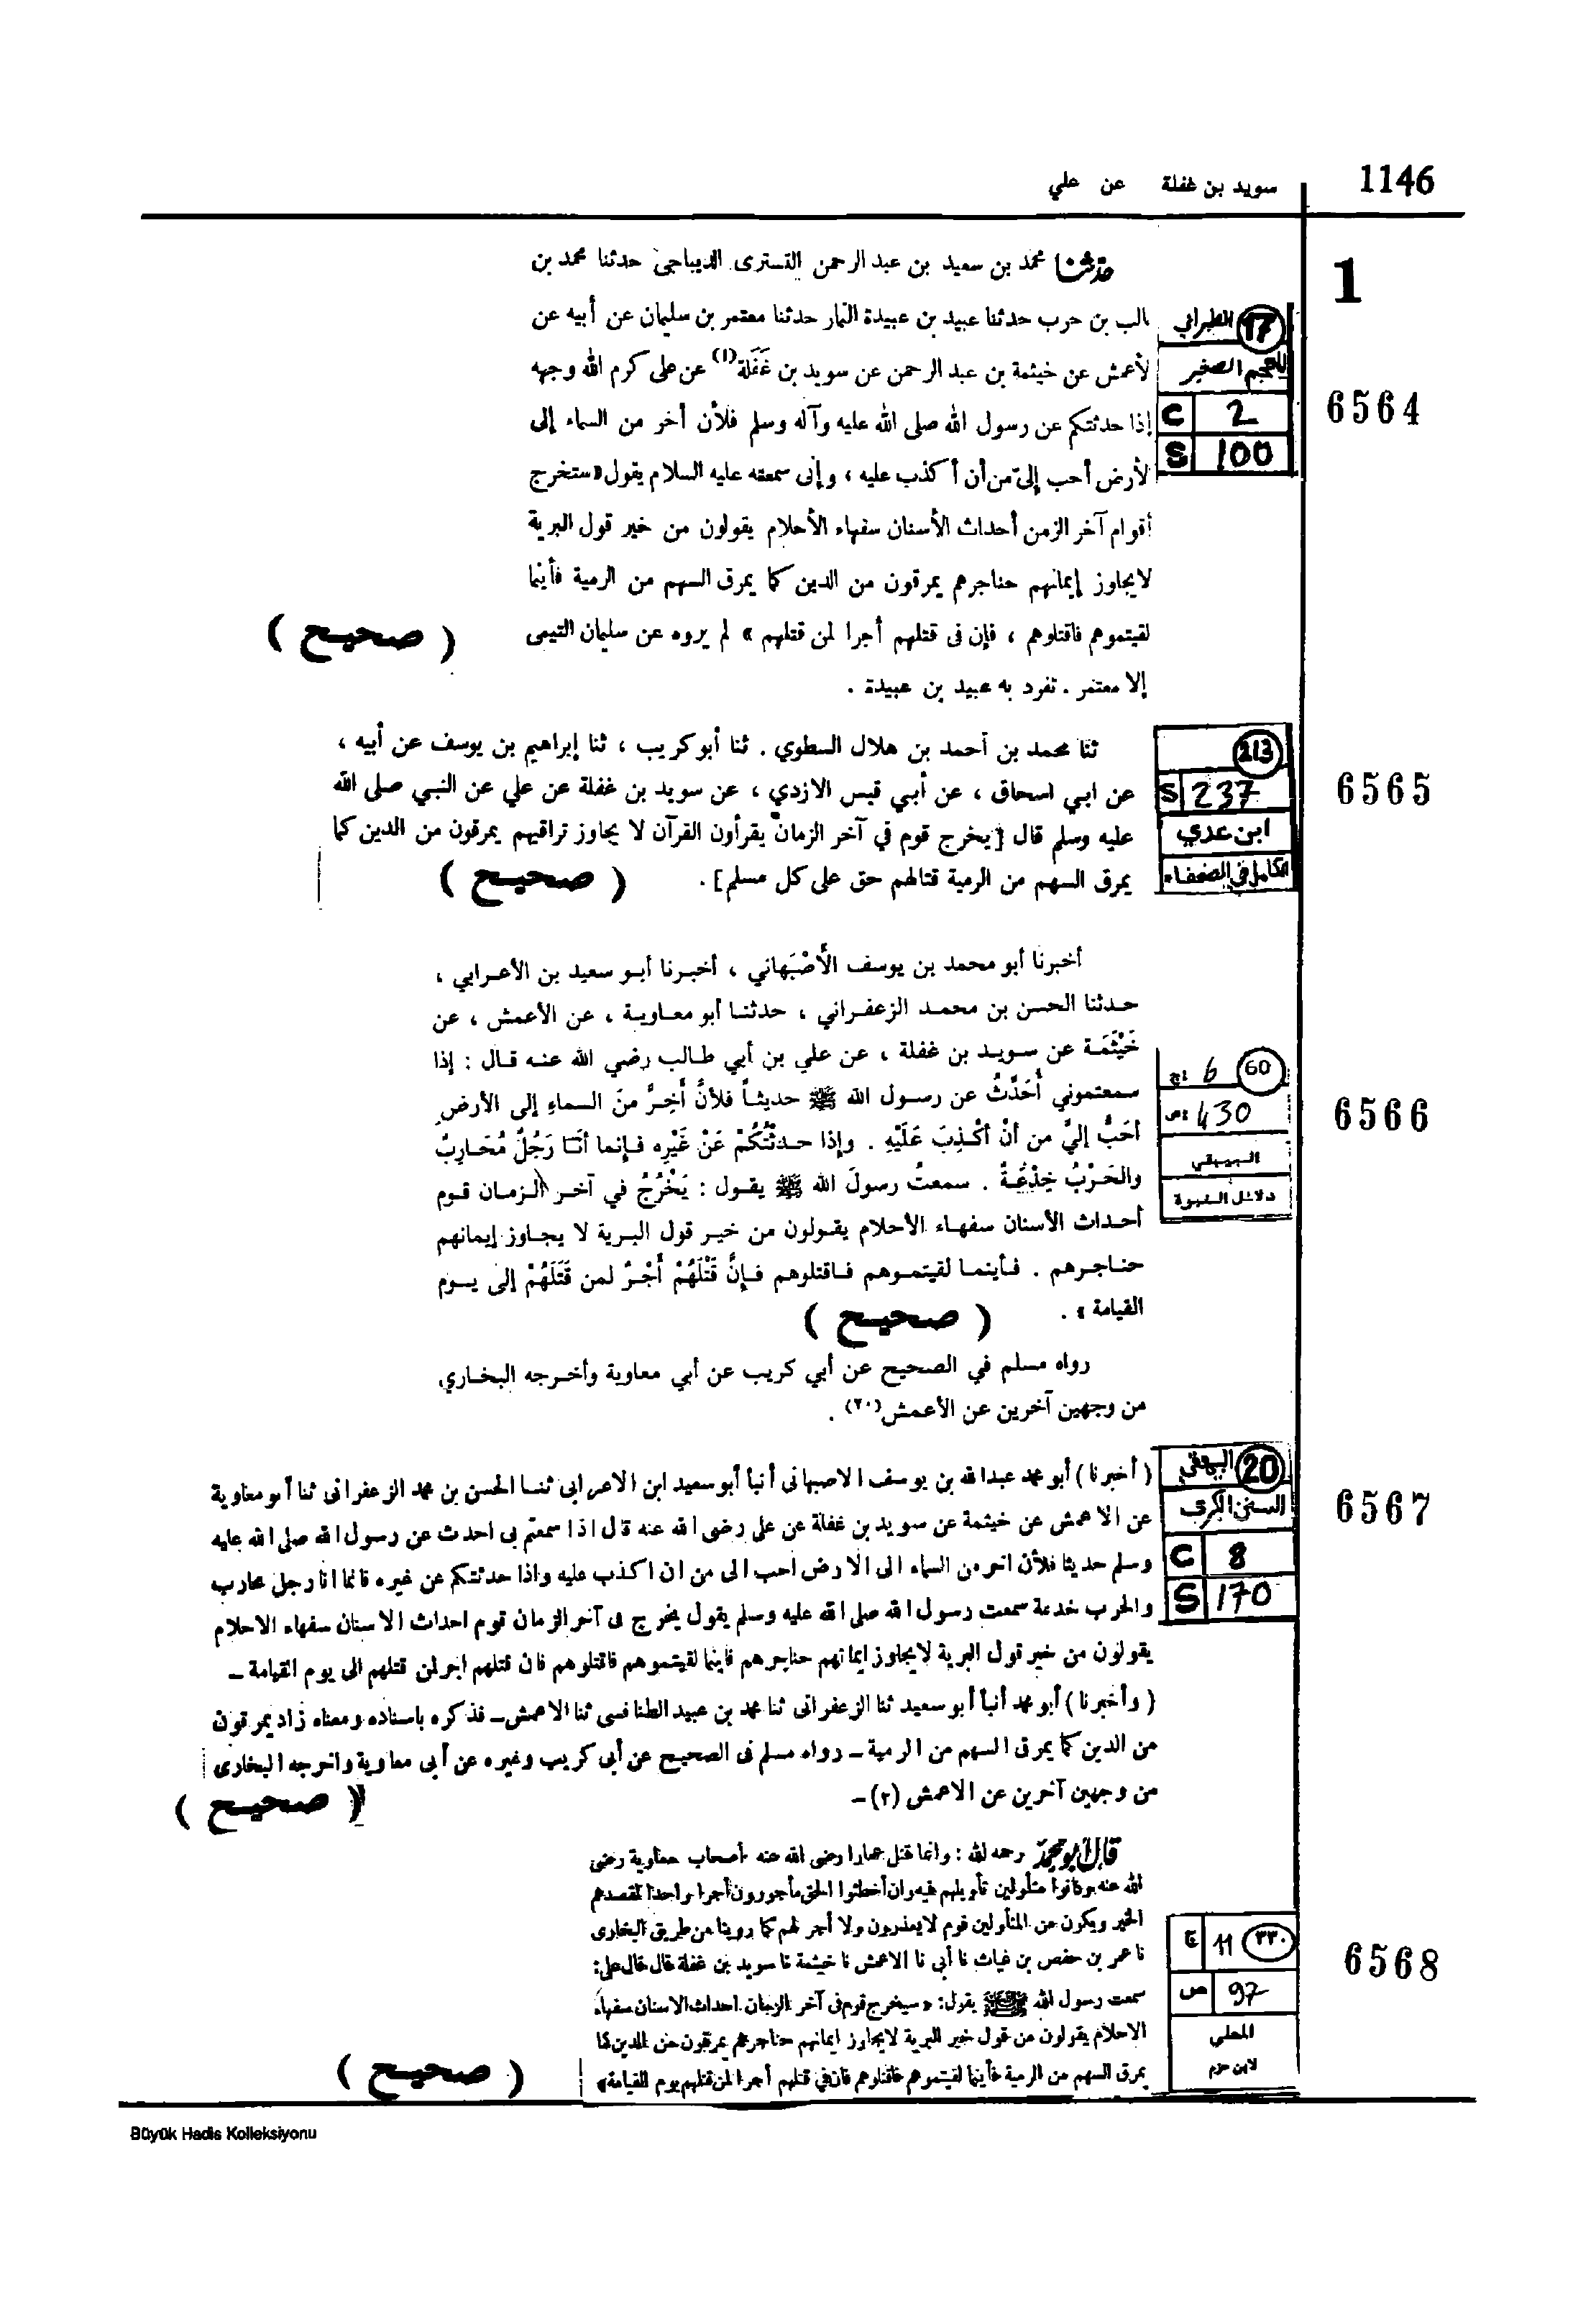 سويد بن غفلة عن علي
1146
1
حدثنا محمد بن سعيد بن عبد الرحمن التسترى الديباجى حدثنا محمد بن
الب بن حرب حدثنا عبيد بن عبيدة التمار حدثنا معتمر بن سليمان عن أبيه عن
لأعمش عن خيثمة بن عبد الرحمن عن سويد بن غَفَلة (١) عن على كرم الله وجهه
إذا حدثتكم عن رسول الله صلى الله عليه وآله وسلم فلأن أخر من السماء إلى
لأرض أحب إلىّ من أن أكذب عليه ، وإنى سمعته عليه السلام يقول «ستخرج
أقوام آخر الزمن أحداث الأسنان سفهاء الأحلام يقولون من خير قول البرية
لايجاوز إيمانهم حناجرهم يمرقون من الدين كما يمرق السهم من الرمية فأينما
لقيتموهم فاقتلوهم ، فإن فى قتلهم أجرا لمن قتلهم » لم يروه عن سليمان التيمى
إلا معتمر . تفرد به عبيد بن عبيدة .
( صحيح )
17 الطبراني
المعجم الصغير
C 2
S 100
6564
ثنا محمد بن أحمد بن هلال السطوي . ثنا أبو كريب ، ثنا إبراهيم بن يوسف عن أبيه ،
عن ابي اسحاق ، عن أبي قيس الازدي ، عن سويد بن غفلة عن علي عن النبي صلى الله
عليه وسلم قال [يخرج قوم في آخر الزمان يقرأون القرآن لا يجاوز تراقيهم يمرقون من الدين كما
يمرق السهم من الرمية قتالهم حق على كل مسلم] .
( صحيح )
213
S 237
ابن عدي
الكامل في الضعفاء
6565
أخبرنا أبو محمد بن يوسف الأَصْبَهاني ، أخبرنا أبو سعيد بن الأعرابي ،
حدثنا الحسن بن محمد الزعفراني ، حدثنا أبو معاوية ، عن الأعمش ، عن
خَيْثَمَة عن سويد بن غفلة ، عن علي بن أبي طالب رضي الله عنه قال : إذا
سمعتموني أُحَدِّثُ عن رسول الله ﷺ حديثاً فلأنْ أَخِرَّ منَ السماءِ إلى الأرضِ
أحَبُّ إليَّ من أنْ أكْذِبَ عَلَيْهِ . وإذا حدثْتُكُمْ عَنْ غَيْرِه فإنما أَنَا رَجُلٌ مُحَارِبٌ
والحَرْبُ خِدْعَةٌ . سمعتُ رسولَ الله ﷺ يقول : يَخْرُجُ في آخر الزمان قوم
أحداث الأسنان سفهاء الأحلام يقولون من خير قول البرية لا يجاوز إيمانهم
حناجرهم . فأينما لقيتموهم فاقتلوهم فإنَّ قَتْلَهُمْ أَجْرٌ لمن قَتَلَهُمْ إلى يوم
القيامة » .
( صحيح )
رواه مسلم في الصحيح عن أبي كريب عن أبي معاوية وأخرجه البخاري
من وجهين آخرين عن الأعمش (٢٠) .
60 ج: 6
ص: 430
البيهقي
دلائل النبوة
6566
( أخبرنا ) أبو محمد عبدالله بن يوسف الاصبهانى أنبأ أبو سعيد ابن الاعرابى ثنا الحسن بن محمد الزعفرانى ثنا أبو معاوية
عن الاعمش عن خيثمة عن سويد بن غفلة عن على رضى الله عنه قال اذا سمعتم بى احدث عن رسول الله صلى الله عليه
وسلم حديثا فلأن اخر من السماء الى الارض احب الى من ان اكذب عليه واذا حدثتكم عن غيره فانما انا رجل محارب
والحرب خدعة سمعت رسول الله صلى الله عليه وسلم يقول يخرج فى آخر الزمان قوم احداث الاسنان سفهاء الاحلام
يقولون من خير قول البرية لايجاوز ايمانهم حناجرهم فاينما لقيتموهم فاقتلوهم فان قتلهم اجر لمن قتلهم الى يوم القيامة –
( وأخبرنا ) أبو محمد أنبأ أبو سعيد ثنا الزعفرانى ثنا محمد بن عبيد الطنافسى ثنا الاعمش – فذكره باسناده ومعناه زاد يمرقون
من الدين كما يمرق السهم من الرمية – رواه مسلم فى الصحيح عن أبى كريب وغيره عن أبى معاوية واخرجه البخارى
من وجهين آخرين عن الاعمش (٢) –
( صحيح )
20 البيهقي
السنن الكبرى
C 8
S 170
6567
قال أبو محمد رحمه الله : وانما قتل عمارا رضى الله عنه أصحاب معاوية رضى
الله عنه وكانوا متأولين تأويلهم فيه وان أخطئوا الحق مأجورون أجرا واحدا لقصدهم
الخير ويكون من المتأولين قوم لايعذرون ولا أجر لهم كما روينا من طريق البخارى
نا عمر بن حفص بن غياث نا أبى نا الاعمش نا خيثمة نا سويد بن غفلة قال قال على :
سمعت رسول الله ﷺ يقول : « سيخرج قوم فى آخر الزمان احداث الاسنان سفهاء
الاحلام يقولون من قول خير البرية لايجاوز ايمانهم حناجرهم يمرقون من الدين كما
يمرق السهم من الرمية فأينما لقيتموهم فاقتلوهم فان فى قتلهم أجرا لمن قتلهم يوم القيامة»
( صحيح )
٣٣٠ 11 ج
97 ص
المحلي
لابن حزم
6568
Büyük Hadis Kolleksiyonu